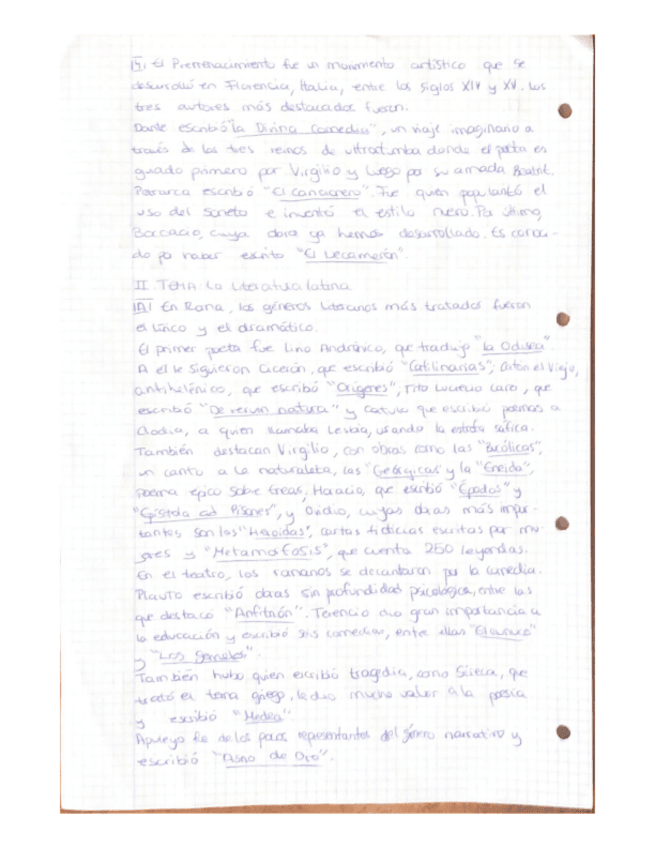 14) El Prerrenacimiento fue un movimiento artístico que se
desarrolló en Florencia, Italia, entre los siglos XIV y XV. Los
tres autores más destacados fueron.
Dante escribió "la Divina Comedia", un viaje imaginario a
través de los tres reinos de ultratumba donde el poeta es
guiado primero por Virgilio y luego por su amada Beatriz.
Petrarca escribió "El Cancionero". Fue quien popularizó el
uso del soneto e inventó el estilo nuevo. Por último,
Boccacio, cuya obra ya hemos desarrollado. Es conoci-
do por haber escrito "El Decamerón".
II. TEMA: La Literatura latina
1A) En Roma, los géneros literarios más tratados fueron
el lírico y el dramático.
El primer poeta fue Livio Andrónico, que tradujo "la Odisea"
A él le siguieron Cicerón, que escribió "Catilinarias", Catón el Viejo,
antihelénico, que escribió "Orígenes", Tito Lucrecio Caro, que
escribió "De rerum natura" y Catulo que escribió poemas a
Clodia, a quien llamaba Lesbia, usando la estrofa sáfica.
También destacan Virgilio, con obras como las "Bucólicas",
un canto a la naturaleza, las "Geórgicas" y la "Eneida",
poema épico sobre Eneas, Horacio, que escribió "Épodos" y
"Epístola ad Pisones", y Ovidio, cuyas obras más impor-
tantes son las "Heroidas", cartas ficticias escritas por mu
jeres y "Metamorfosis", que cuenta 250 leyendas.
En el teatro, los romanos se decantaron por la comedia.
Plauto escribió obras sin profundidad psicológica, entre las
que destacó "Anfitrión". Terencio dio gran importancia a
la educación y escribió seis comedias, entre ellas "El eunuco"
y "Los Gemelos".
También hubo quien escribió tragedia, como Séneca, que
trató el tema griego, le dio mucho valor a la poesía
y escribió "Medea"
Apuleyo fue de los pocos representantes del género narrativo y
escribió "Asno de Oro".